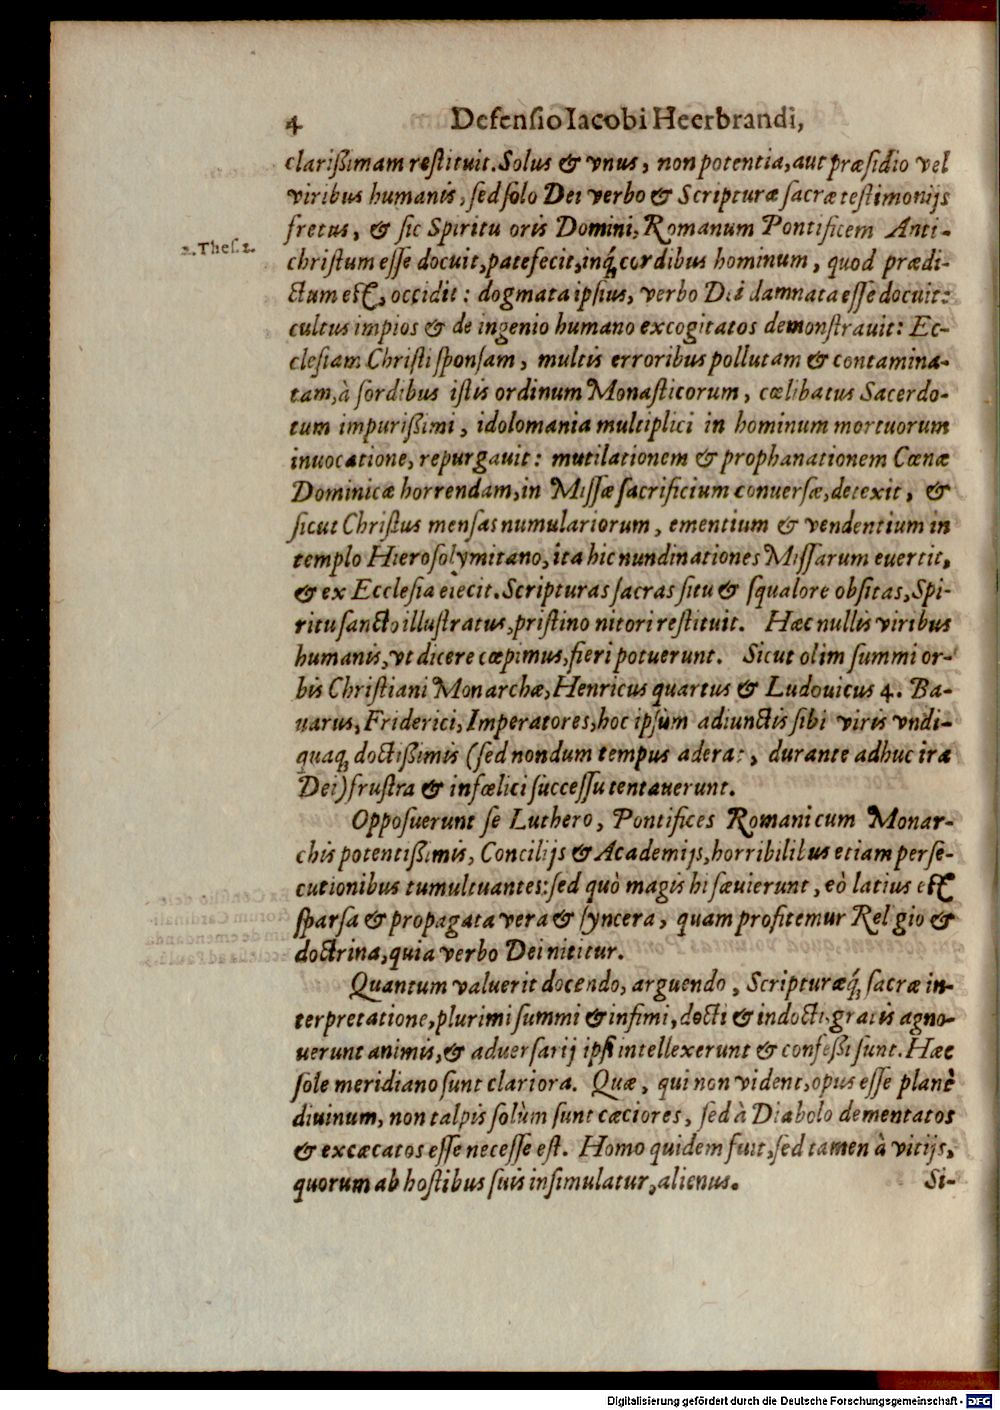 4 Defensio Iacobi Heerbrandi,
clarißimam restituit. Solus & vnus, non potentia, aut præsidio vel
viribus humanis, sed solo Dei verbo & Scripturæ sacræ testimonijs
fretus, & sic Spiritu oris Domini, Romanum Pontificem Anti-
2. Thes. 2.
christum esse docuit, patefecit, inq́; cordibus hominum, quod prædi-
ctum est, occidit: dogmata ipsius, verbo Dei damnata esse docuit:
cultus impios & de ingenio humano excogitatos demonstrauit: Ec-
clesiam Christi sponsam, multis erroribus pollutam & contamina-
tam, à sordibus istis ordinum Monasticorum, cœlibatus Sacerdo-
tum impurißimi, idolomania multiplici in hominum mortuorum
inuocatione, repurgauit: mutilationem & prophanationem Cœnæ
Dominicæ horrendam, in Missæ sacrificium conuersæ, detexit, &
sicut Christus mensas numulariorum, ementium & vendentium in
templo Hierosolymitano, ita hic nundinationes Missarum euertit,
& ex Ecclesia eiecit. Scripturas sacras situ & squalore obsitas, Spi-
ritu sancto illustratus, pristino nitori restituit. Hæc nullis viribus
humanis, vt dicere cœpimus, fieri potuerunt. Sicut olim summi or-
bis Christiani Monarchæ, Henricus quartus & Ludouicus 4. Ba-
uarus, Friderici, Imperatores, hoc ipsùm adiunctis sibi viris vndi-
quaq; doctißimis (sed nondum tempus aderat, durante adhuc ira
Dei) frustra & infœlici successu tentauerunt.
Opposuerunt se Luthero, Pontifices Romani cum Monar-
chis potentißimis, Concilijs & Academijs, horribilibus etiam perse-
cutionibus tumultuantes: sed quò magis hi sæuierunt, eò latius est
sparsa & propagata vera & syncera, quam profitemur Religio &
doctrina, quia verbo Dei nititur.
Quantum valuerit docendo, arguendo, Scripturæq́; sacræ in-
terpretatione, plurimi summi & infimi, docti & indocti, gratis agno-
uerunt animis, & aduersarij ipsi intellexerunt & confeßi sunt. Hæc
sole meridiano sunt clariora. Quæ, qui non vident, opus esse planè
diuinum, non talpis solùm sunt cæciores, sed à Diabolo dementatos
& excæcatos esse necesse est. Homo quidem fuit, sed tamen à vitijs,
quorum ab hostibus suis insimulatur, alienus.
Si-
Digitalisierung gefördert durch die Deutsche Forschungsgemeinschaft - DFG